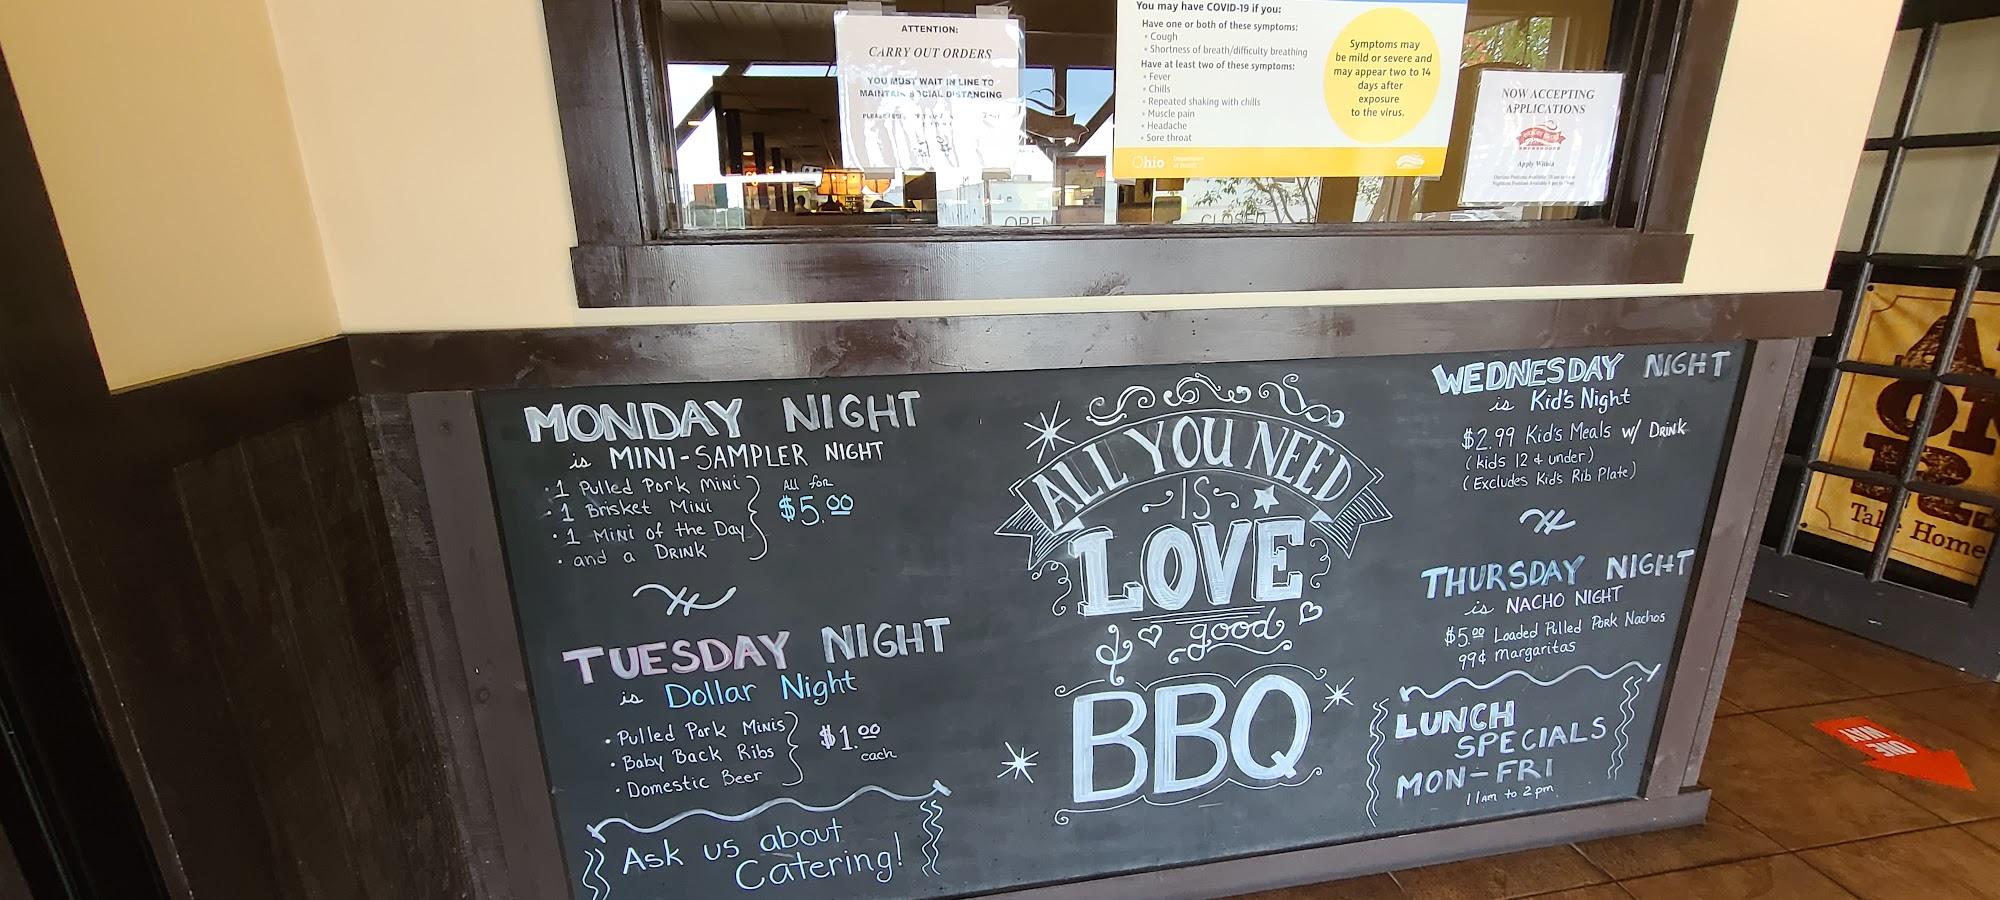 ATTENTION:
CARRY OUT ORDERS
YOU MUST WAIT IN LINE TO
MAINTAIN SOCIAL DISTANCING
You may have COVID-19 if you:
Have one or both of these symptoms:
• Cough
• Shortness of breath/difficulty breathing
Have at least two of these symptoms:
• Fever
• Chills
• Repeated shaking with chills
• Muscle pain
• Headache
• Sore throat
Symptoms may
be mild or severe and
may appear two to 14
days after
exposure
to the virus.
Ohio
Department
of Health
NOW ACCEPTING
APPLICATIONS
Apply Within
OPEN
CLOSED
MONDAY NIGHT
is MINI-SAMPLER NIGHT
• 1 Pulled Pork Mini
• 1 Brisket Mini
• 1 Mini of the Day
• and a Drink
All for
$5.00
TUESDAY NIGHT
is Dollar Night
• Pulled Pork Minis
• Baby Back Ribs
• Domestic Beer
$1.00
each
Ask us about
Catering!
ALL YOU NEED
IS
LOVE
& good
BBQ
WEDNESDAY NIGHT
is Kid's Night
$2.99 Kid's Meals w/ Drink
(kids 12 & under)
(Excludes Kid's Rib Plate)
THURSDAY NIGHT
is NACHO NIGHT
$5.00 Loaded Pulled Pork Nachos
99¢ Margaritas
LUNCH
SPECIALS
MON-FRI
11am to 2pm
Take Home
ONE
WAY